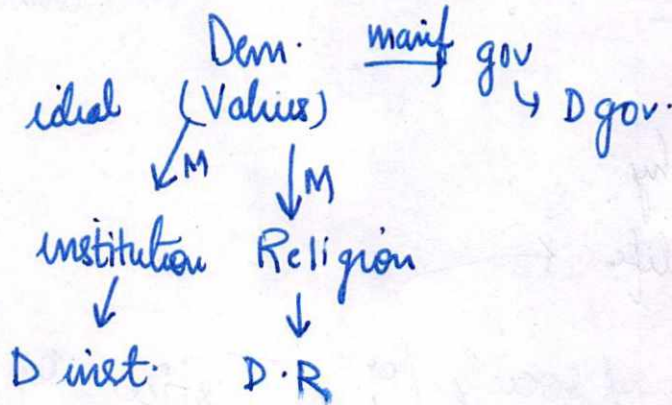 Dem. manif gov
ideal (Values) ↳ D gov.
↙ M ↓ M
institution Religion
↓ ↓
D inst. D.R